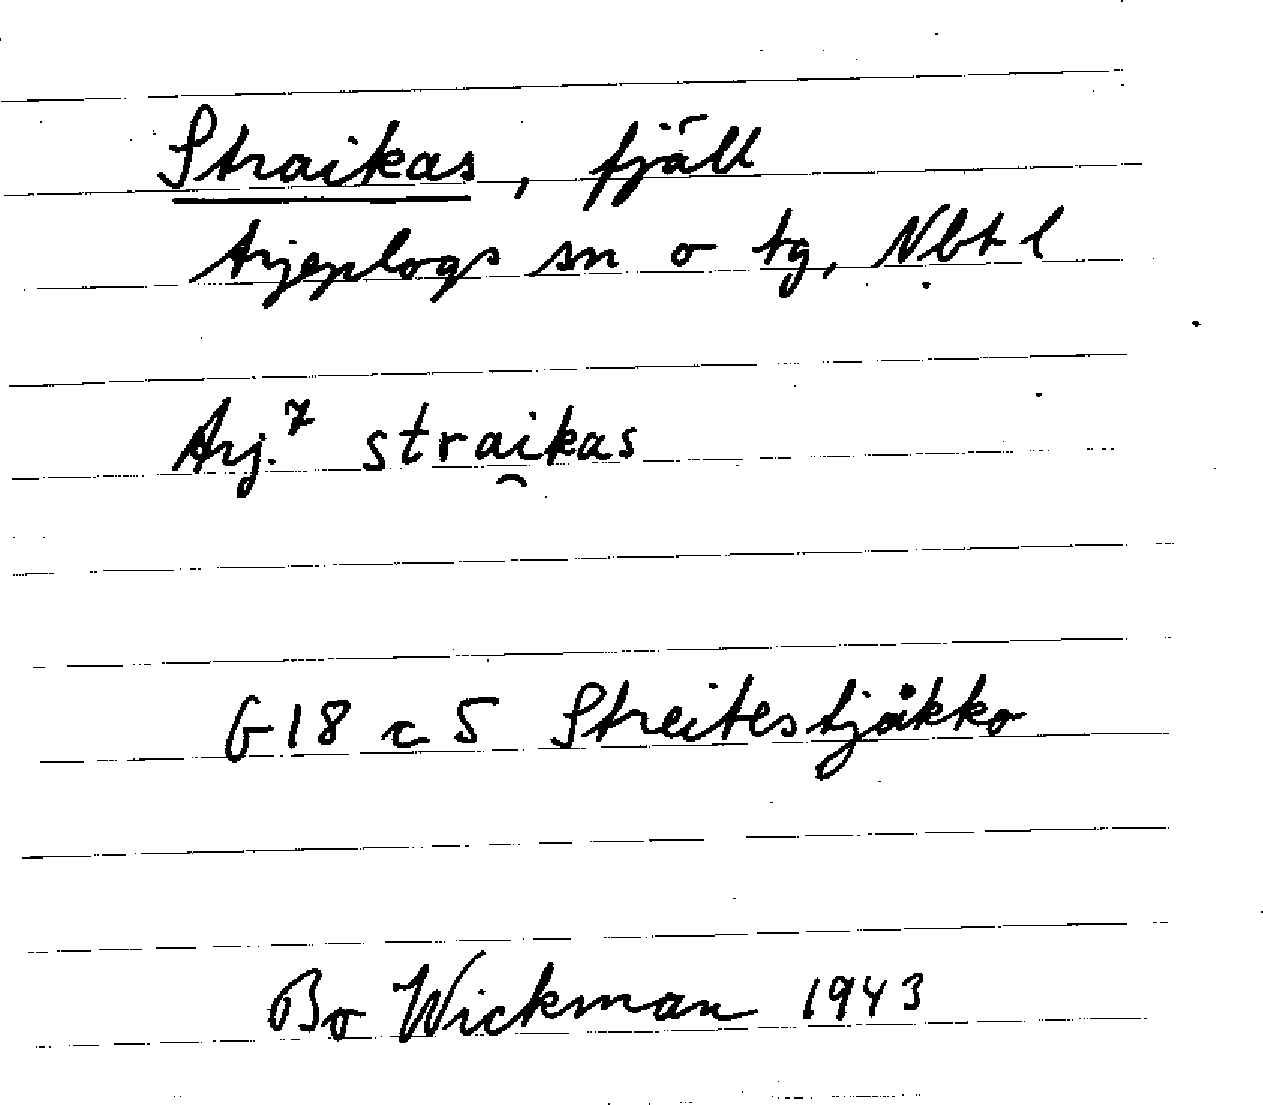 Straikas, fjäll
Arjeplogs sn o tg, Nbt l
Arj.⁷ strai̯kas
G18 c 5 Streitestjåkko
Bo Wickman 1943